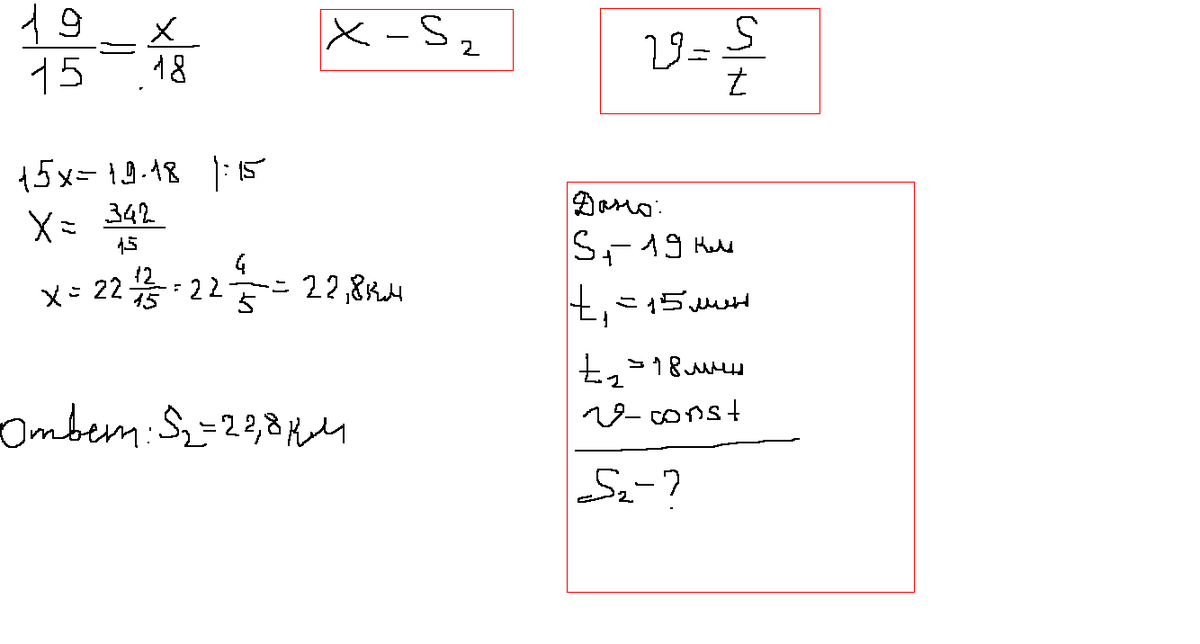 19/15 = x/18
x - S₂
v = S/t
15x = 19·18 |:15
x = 342/15
x = 22 12/15 = 22 4/5 = 22,8 км
Ответ: S₂ = 22,8 км
Дано:
S₁ - 19 км
t₁ = 15 мин
t₂ = 18 мин
v - const
S₂ - ?